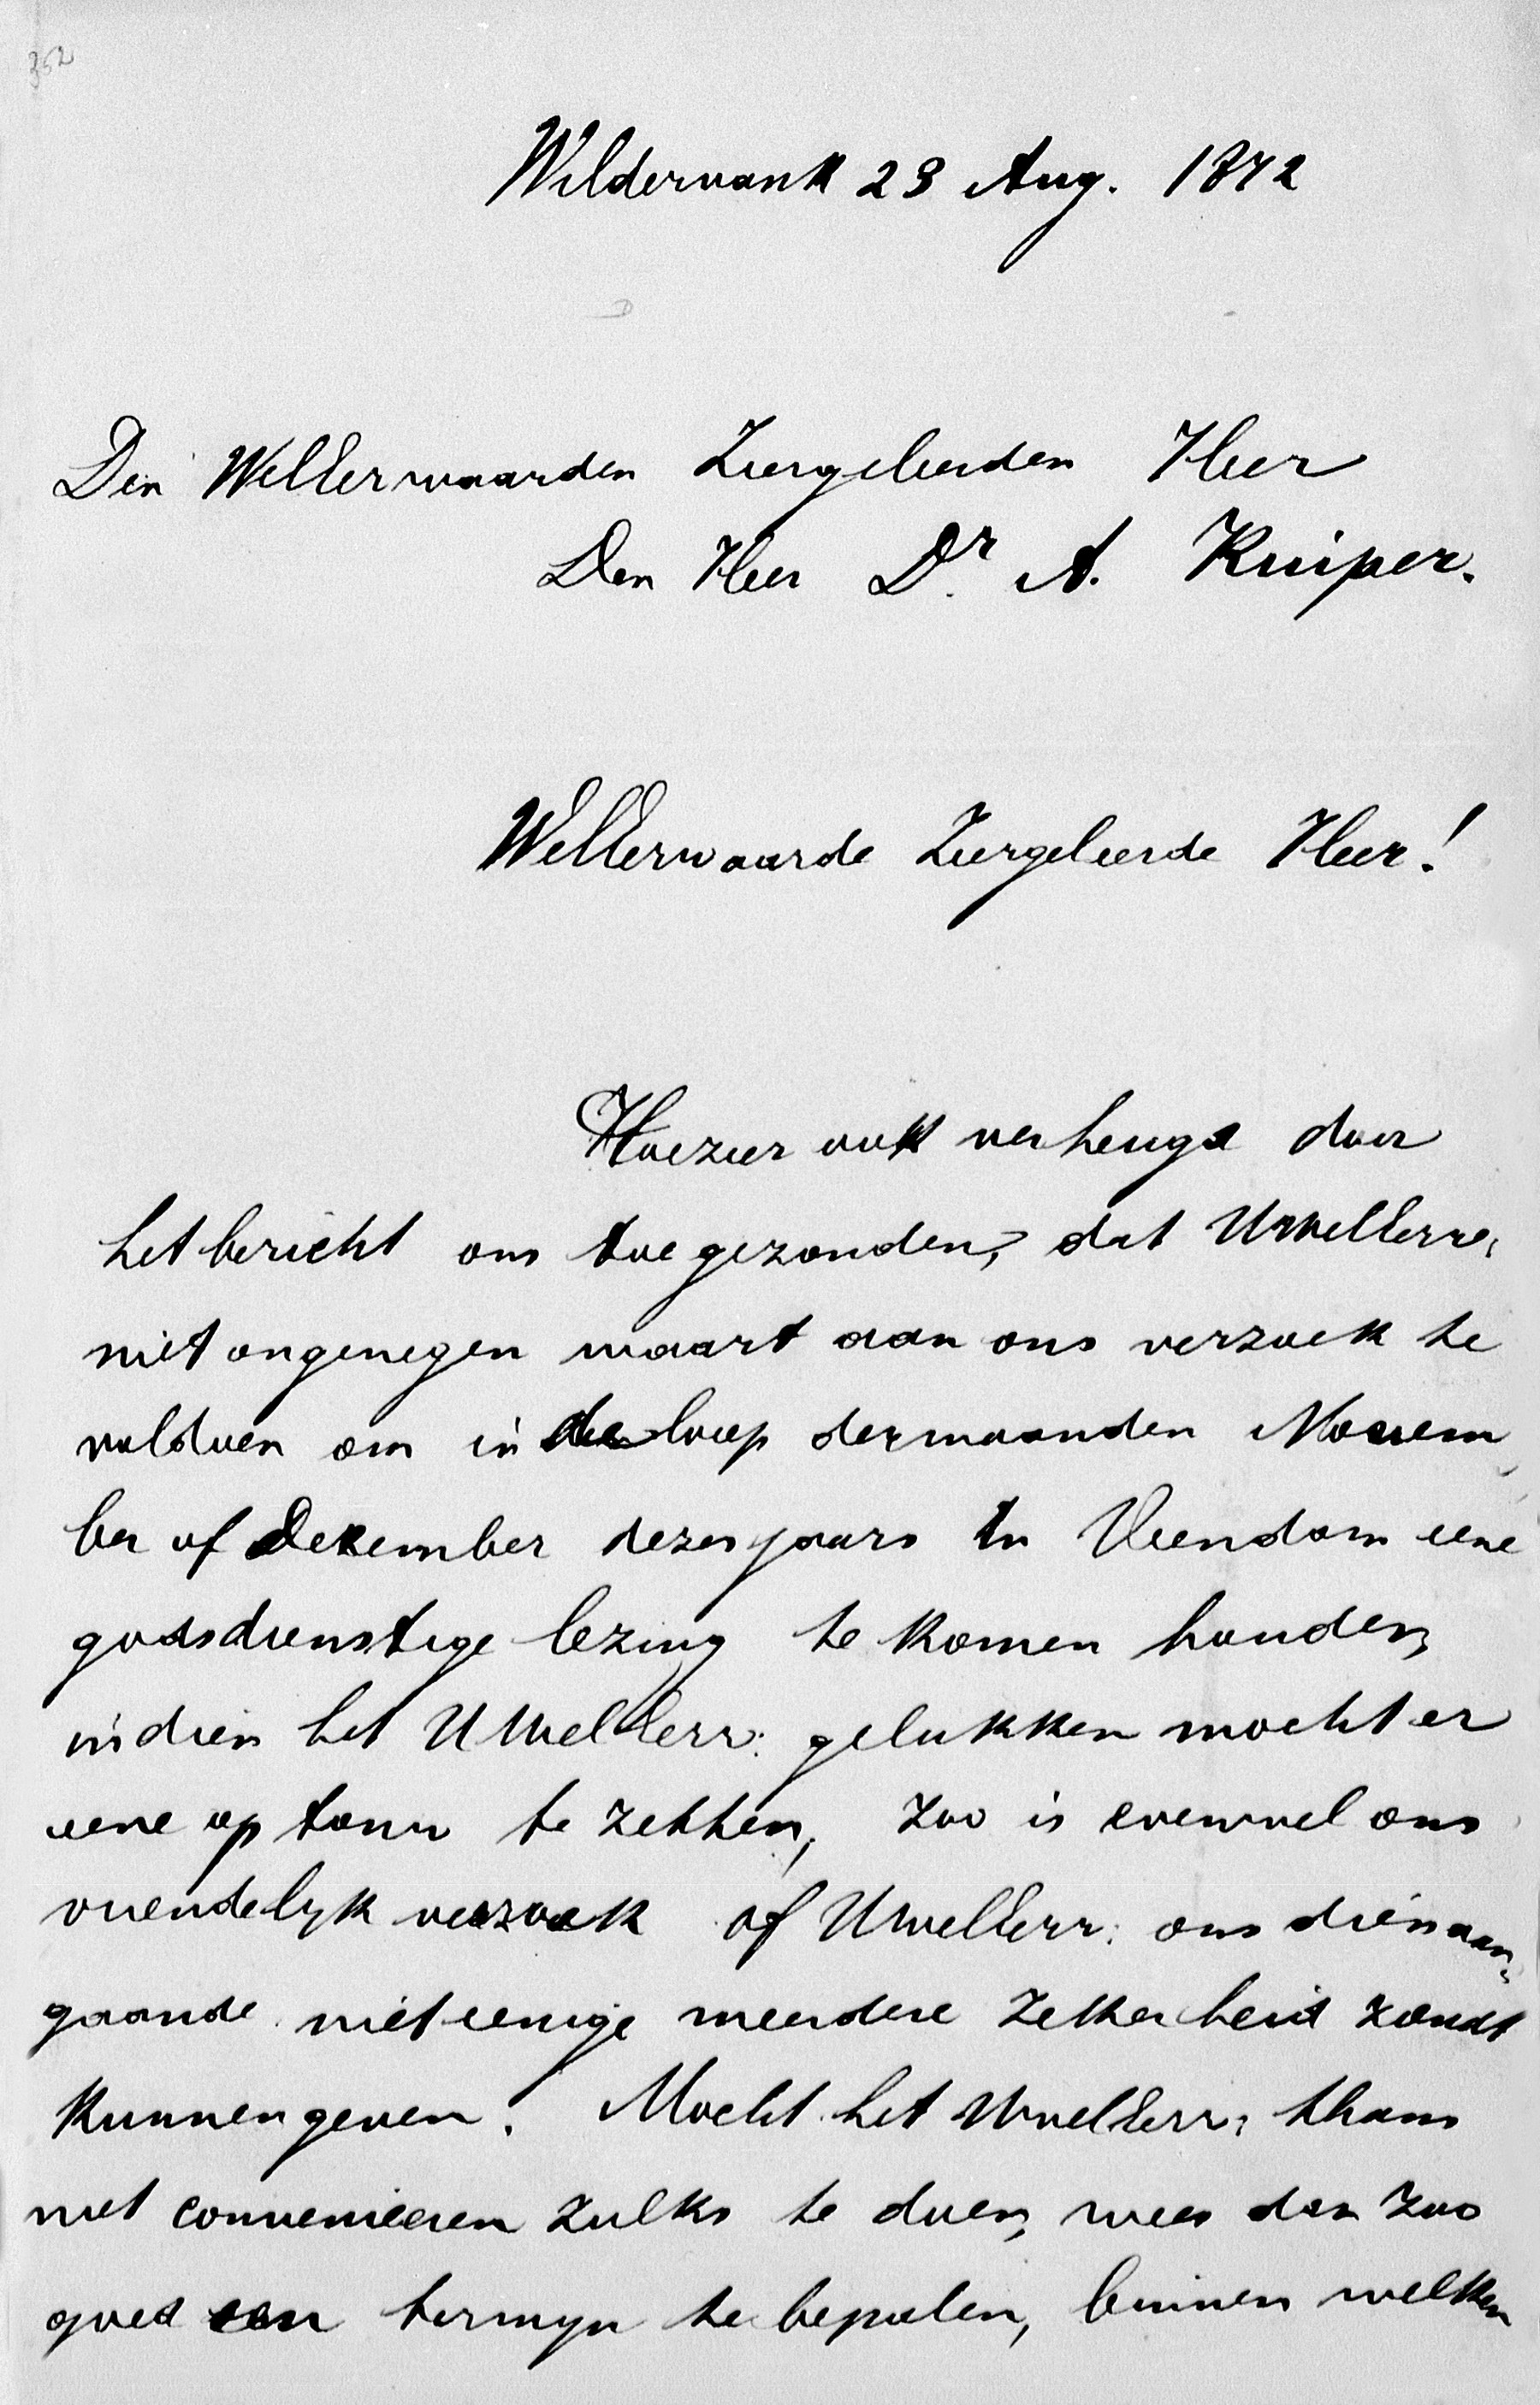 352
Wildervank 29 Aug. 1872
Den WelEerwaarden Zeergeleerden Heer
Den Heer Dr. A. Kuiper.
WelEerwaarde Zeergeleerde Heer!
Hoezeer ook verheugd door
het bericht ons toegezonden, dat UwelEerw,
niet ongenegen waart aan ons verzoek te
voldoen om in den loop der maanden Novem
ber of Dezember dezes jaars In Veendam eene
godsdienstige lezing te komen houden,
indien het UWelEerw: gelukken mocht er
eene op touw te zetten, zoo is evenwel ons
vriendelijk verzoek of UwelEerw: ons dienaan-
gaande niet eenige meerdere zekerheid zoudt
kunnen geven. Mocht het UwelEerw, thans
niet convenieeren zulks te doen, wees dan zoo
goed een termyn te bepalen, binnen welken